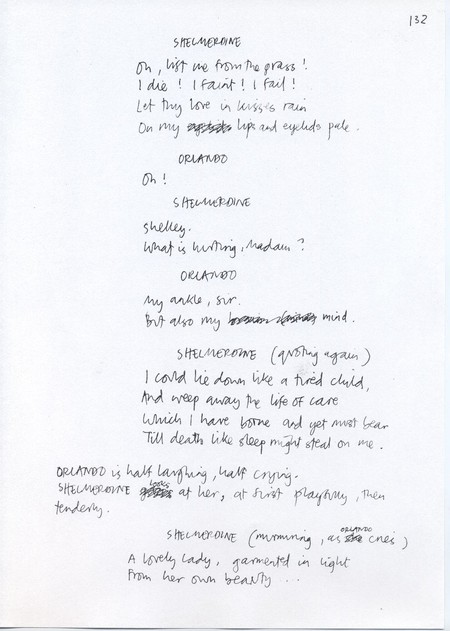 132
SHELMERDINE
Oh, lift me from the grass!
I die! I faint! I fail!
Let thy love in kisses rain
On my lips and eyelids pale.
ORLANDO
Oh!
SHELMERDINE
Shelley.
What is hurting, Madam?
ORLANDO
My ankle, sir.
But also my mind.
SHELMERDINE (quoting again)
I could lie down like a tired child,
And weep away the life of care
Which I have borne and yet must bear
Till death like sleep might steal on me.
ORLANDO is half laughing, half crying.
SHELMERDINE looks at her, at first playfully, then
tenderly.
SHELMERDINE (murmuring, as ORLANDO cries)
A lovely lady, garmented in light
From her own beauty ...